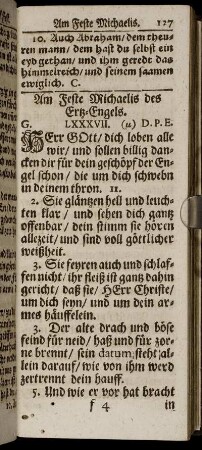 Am Feste Michaelis. 127
10. Auch Abraham/dem theu-
ren mann/dem hast du selbst ein
eyd gethan/ und ihm geredt das
himmelreich/und seinem saamen
ewiglich. C.
Am Feste Michaelis des
Ertz-Engels.
G. LXXXVII. (u) D. P. E.
HErr GOtt/ dich loben alle
wir/ und sollen billig dan-
cken dir für dein geschöpf der En-
gel schon/ die um dich schwebn
in deinem thron. 11.
2. Sie gläntzen hell und leuch-
ten klar/ und sehen dich gantz
offenbar/ dein stimm sie hören
allezeit/ und sind voll göttlicher
weißheit.
3. Sie feyren auch und schlaf-
fen nicht/ ihr fleiß ist gantz dahin
gericht/ daß sie/ HErr Christe/
um dich seyn/ und um dein ar-
mes häuffelein.
3. Der alte drach und böse
feind für neid/ haß und für zor-
ne brennt/ sein datum steht al-
lein darauf/ wie von ihm werd
zertrennt dein hauff.
5. Und wie er vor hat bracht
f 4 in